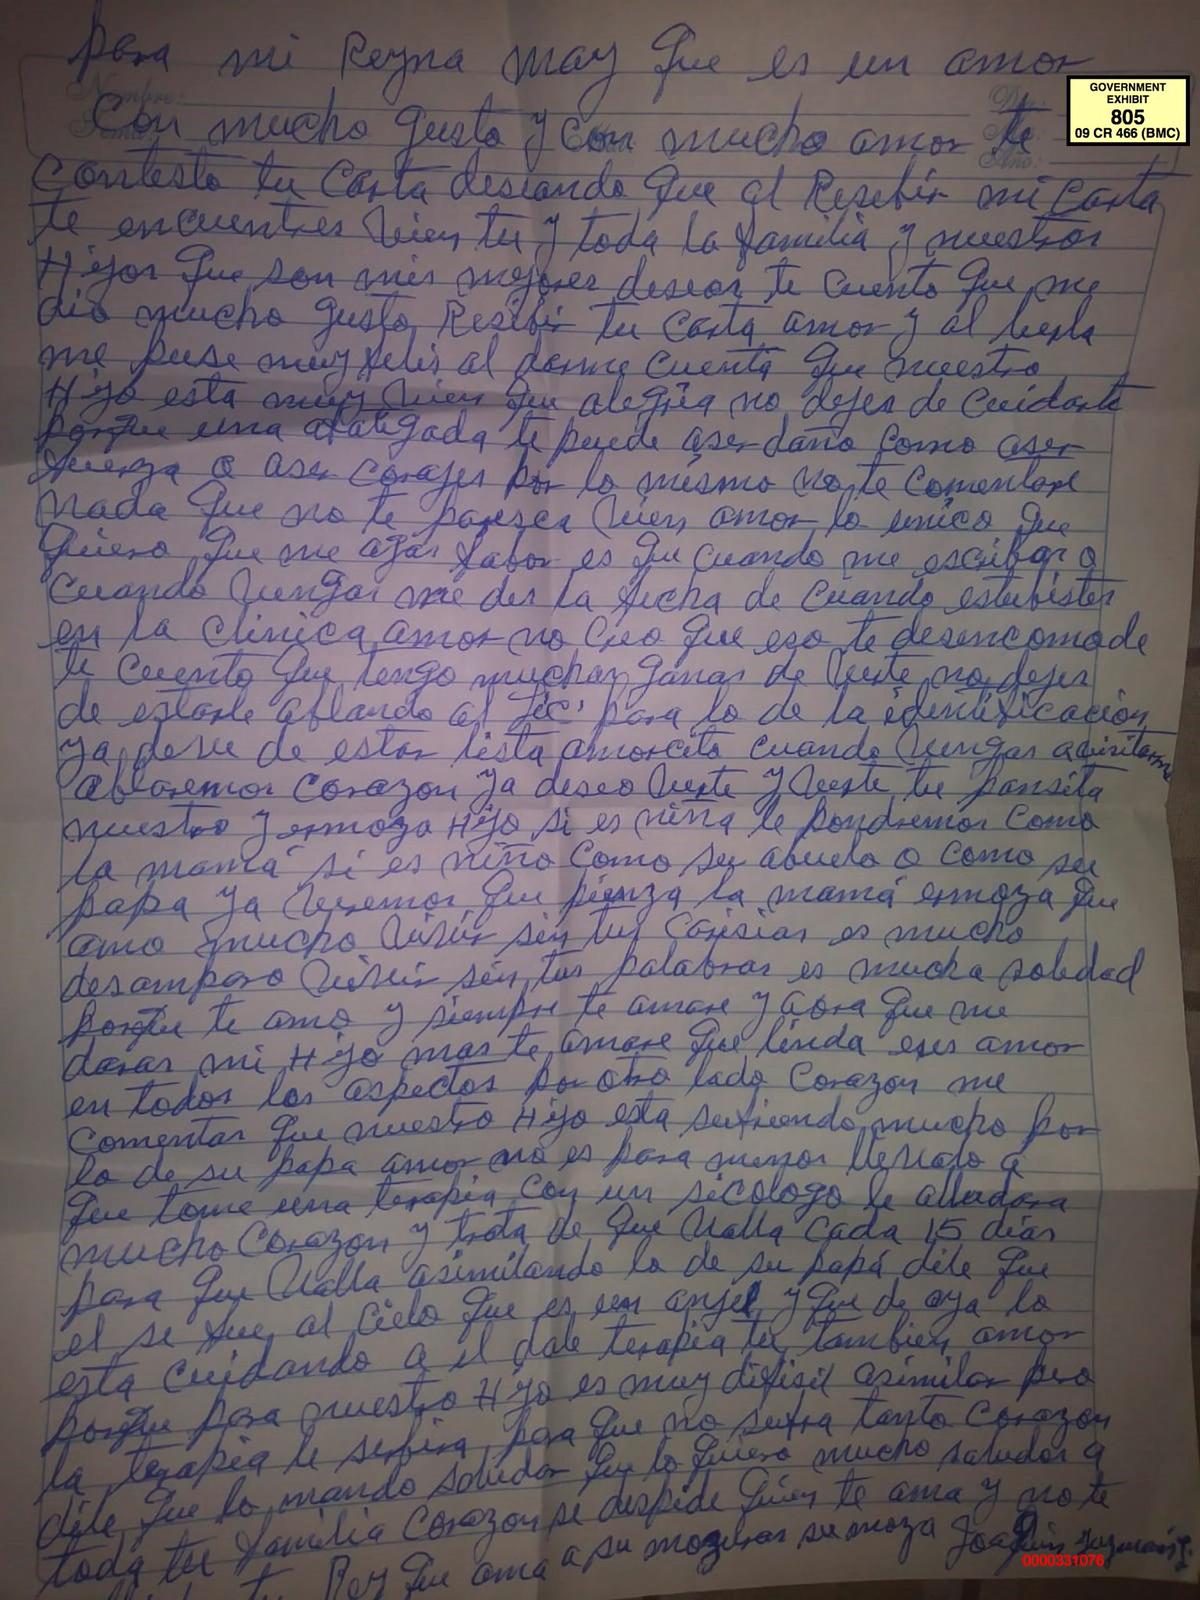 para mi Reyna may que es un amor
GOVERNMENT
EXHIBIT
805
09 CR 466 (BMC)
Nombre:
Con mucho gusto y con mucho amor te
Contesto tu Carta deseando que al Resebir mi Carta
te encuentres vien tu y toda la familia y nuestros
Hijos que son mis mejores deseos te cuento que me
dio mucho gusto Resibir tu carta amor y al leerla
me puse muy felis al darme cuenta que nuestro
Hijo esta muy vien que alegria no dejes de cuidarte
porque una te puede aser daño como aser
fuerza o aser corajes por lo mismo no te comentare
nada que no te paresca vien amor lo unico que
quiero que me agas fabor es que cuando me escribas o
cuando vengas me des la fecha de cuando estubistes
en la clinica amor no creo que eso te desencomode
te cuento que tengo muchas ganas de verte no dejes
de estarle ablando al Lic. para lo de la identificacion
ya deve de estar lista amorcito cuando vengas a visitarme
ablaremos corazon ya deseo verte y verte tu pansita
nuestro y ermoza Hijo si es niña le pondremos como
la mamá si es niño como su abuelo o como su
papa ya veremos que pienza la mamá ermoza que
amo mucho vivir sin tus carisias es mucho
desamparo vivir sin tus palabras es mucha soledad
porque te amo y siempre te amare y aora que me
daras mi Hijo mas te amare que linda eres amor
en todos los aspectos por otro lado corazon me
comentas que nuestro Hijo esta sufriendo mucho por
lo de su papa amor no es para menos llevalo a
que tome una terapia con un sicologo le alludara
mucho corazon y trata de que valla cada 15 dias
para que valla asimilando lo de su papá dile que
el se fue al cielo que es un anjel y que de aya lo
esta cuidando a el dale terapia tu tambien amor
porque para nuestro Hijo es muy difisil asimilar pero
la terapia le serbira para que no sufra tanto corazon
dile que lo mando saludar que lo quiero mucho saludos a
toda tu familia corazon se despide quien te ama y no te
tu Rey que ama a su su moza Joaquin Guzman L.
0000331076